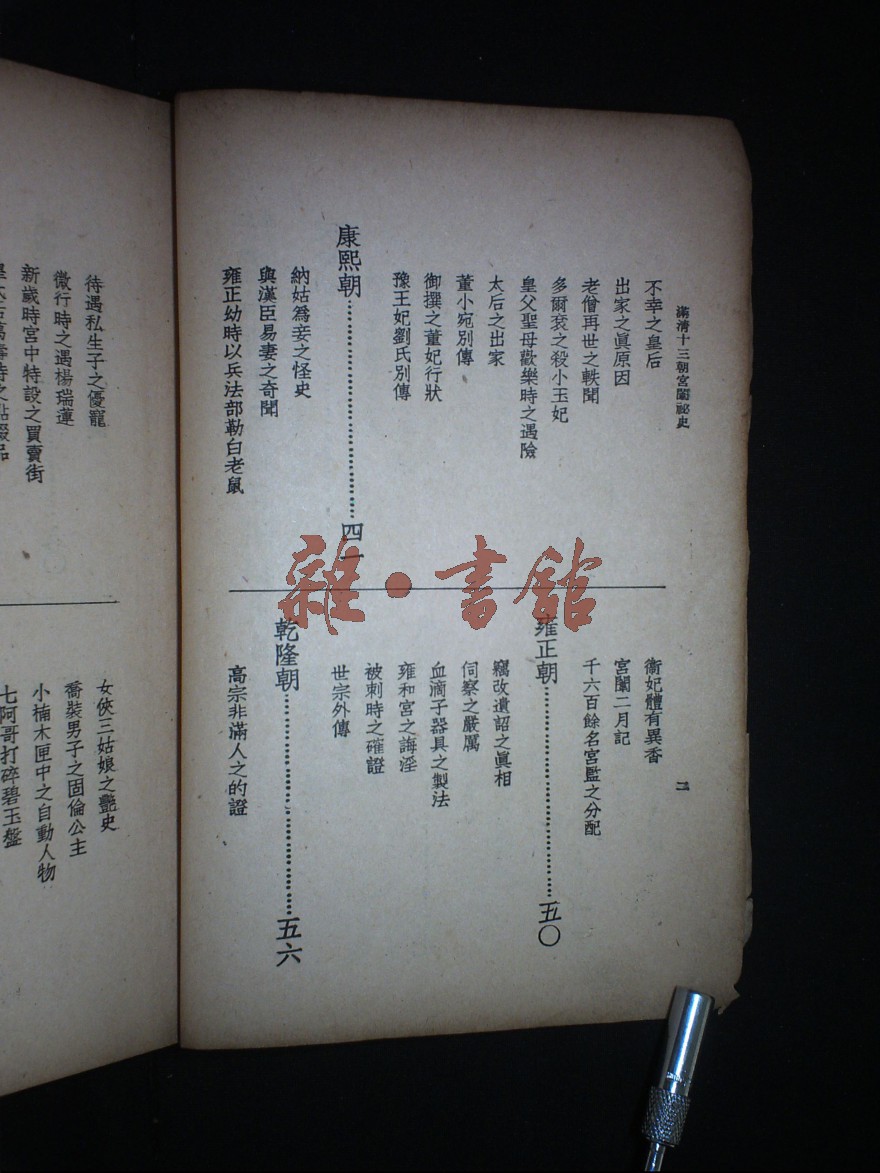 滿清十三朝宮闈祕史
不幸之皇后
出家之眞原因
老僧再世之軼聞
多爾袞之殺小玉妃
皇父聖母歡樂時之遇險
太后之出家
董小宛別傳
御撰之董妃行狀
豫王妃劉氏別傳
康熙朝……四一
納姑爲妾之怪史
與漢臣易妻之奇聞
雍正幼時以兵法部勒白老鼠
衞妃體有異香
宮闈二月記
千六百餘名宮監之分配
雍正朝……五〇
竊改遺詔之眞相
伺察之嚴厲
血滴子器具之製法
雍和宮之誨淫
被刺時之確證
世宗外傳
乾隆朝……五六
高宗非滿人之的證
二
待遇私生子之優寵
微行時之遇楊瑞蓮
新歲時宮中特設之買賣街
女俠三姑娘之艷史
喬裝男子之固倫公主
小楠木匣中之自動人物
七阿哥打碎碧玉盤
雜·書館